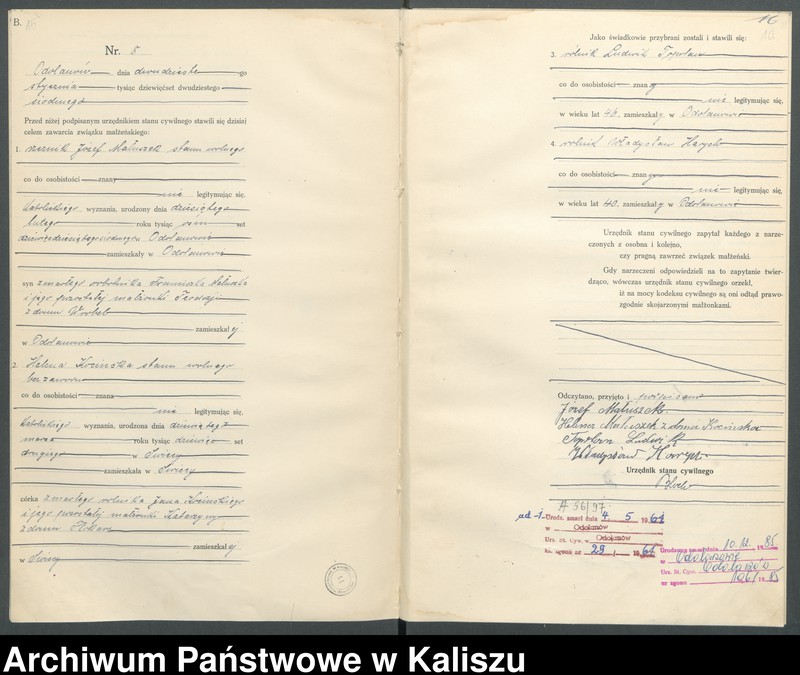 B.
Nr. 8
Odolanów dnia dwudziestego
stycznia tysiąc dziewięćset dwudziestego
siódmego
Przed niżej podpisanym urzędnikiem stanu cywilnego stawili się dzisiaj
celem zawarcia związku małżeńskiego:
1. Józef Matuszek stanu wolnego
co do osobistości znany
nie legitymując się,
katolickiego wyznania, urodzony dnia dziesiątego
lutego roku tysiąc osiem set
dziewięćdziesiątego siódmego w Odolanowie
zamieszkały w Odolanowie
syn zmarłego robotnika Franciszka Matuszka
i jego pozostałej małżonki
z domu
zamieszkałej
w Odolanowie
2. Helena Kocińska stanu wolnego
bez zawodu
co do osobistości znana
nie legitymując się,
katolickiego wyznania, urodzona dnia dziewiątego
marca roku tysiąc dziewięć set
drugiego w
zamieszkała w
córka zmarłego rolnika Jana Kocińskiego
i jego pozostałej małżonki Katarzyny
z domu
zamieszkałej
w
16
Jako świadkowie przybrani zostali i stawili się:
3. rolnik Ludwik
co do osobistości znany
nie legitymując się,
w wieku lat 46, zamieszkały w Odolanowie
4. rolnik Władysław
co do osobistości znany
nie legitymując się,
w wieku lat 40, zamieszkały w Odolanowie
Urzędnik stanu cywilnego zapytał każdego z narze-
czonych z osobna i kolejno,
czy pragną zawrzeć związek małżeński.
Gdy narzeczeni odpowiedzieli na to zapytanie twier-
dząco, wówczas urzędnik stanu cywilnego orzekł,
iż na mocy kodeksu cywilnego są oni odtąd prawo-
zgodnie skojarzonymi małżonkami.
Odczytano, przyjęto i podpisano
Józef Matuszek
Helena Matuszek z domu Kocińska
Ludwik
Władysław
Urzędnik stanu cywilnego
A 56/97
ad -1- Urodz. zmarł dnia 4. 5 1961
w Odolanów
Urz. St. Cyw. w Odolanów
kl. zgonu nr 29 / 1961
10.12. 1985
w Odolanowie
Urz. St. Cyw. Odolanów
nr zgonu 106/1985
Archiwum Państwowe w Kaliszu